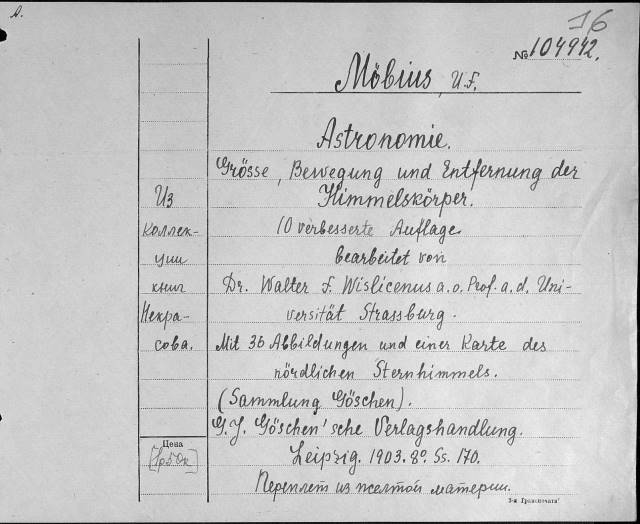 A.
16
№ 104942.
Möbius, U.F.
Astronomie.
Grösse, Bewegung und Entfernung der
Himmelskörper.
10 verbesserte Auflage
bearbeitet von
Dr. Walter F. Wislicenus a.o. Prof. a. d. Uni-
versität Strassburg.
Mit 36 Abbildungen und einer Karte des
nördlichen Sternhimmels.
(Sammlung Göschen).
G.J. Göschen'sche Verlagshandlung.
Leipzig. 1903. 8º. Ss. 170.
Переплет из желтой материи.
Из
коллек-
ции
книг
Некра-
сова.
Цена
3-я Гранпочата